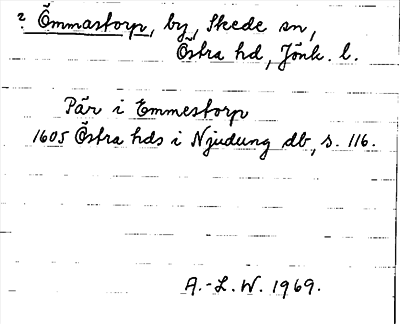 ? Emmastorp, by, Skede sn,
Östra hd, Jönk. l.
Pär i Emmestorp
1605 Östra hds i Njudung db, s. 116.
A.-L. W. 1969.